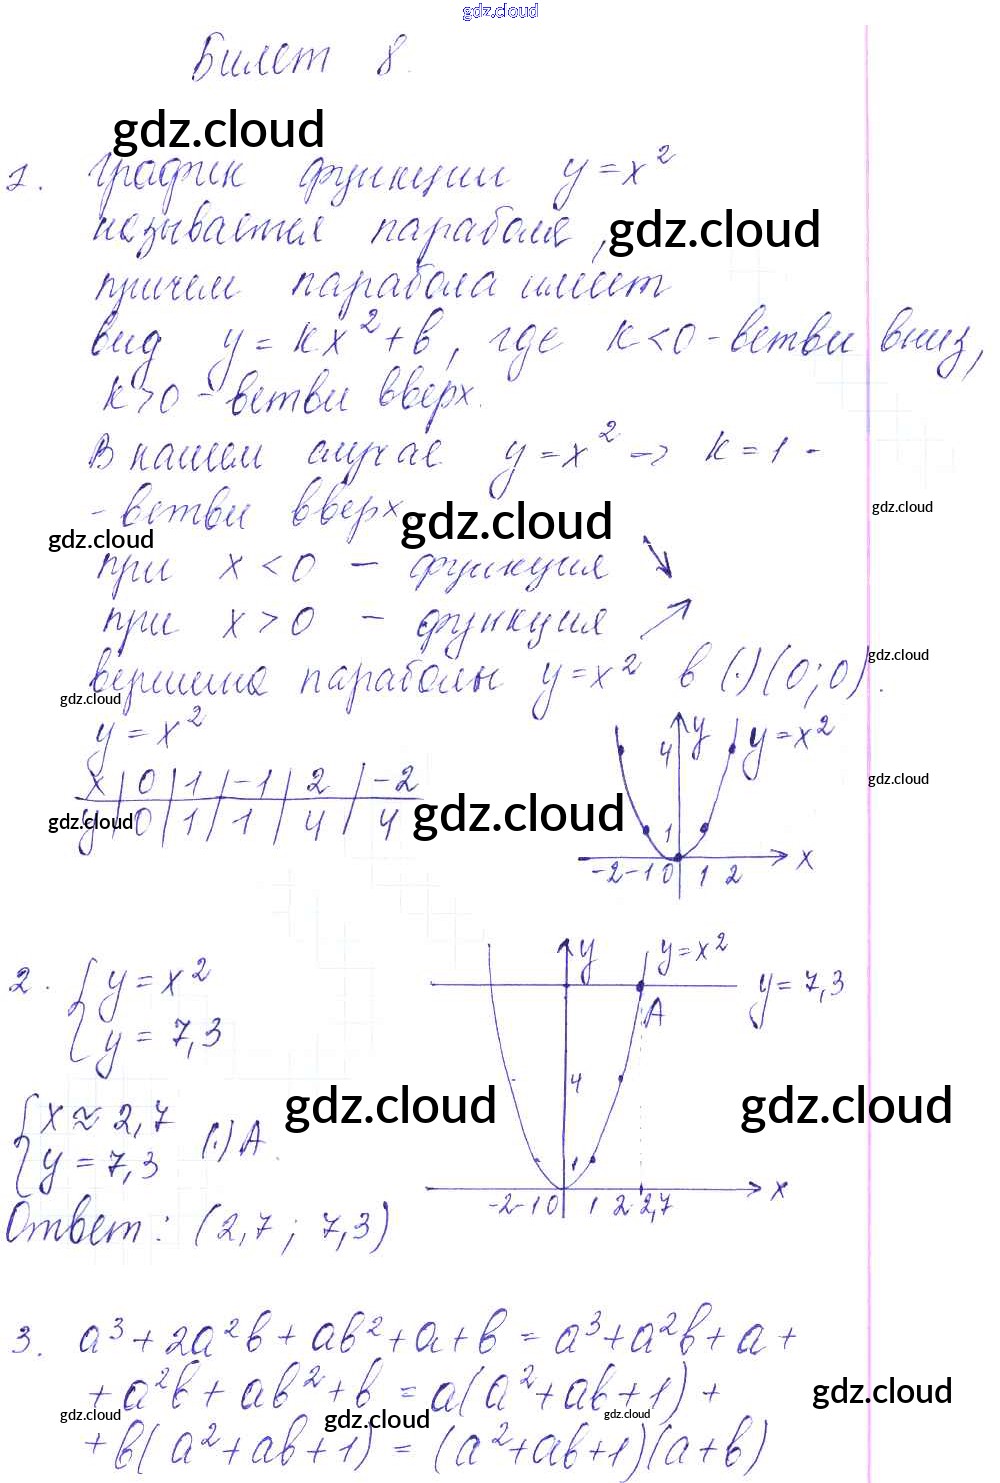 gdz.cloud
Билет 8.
gdz.cloud
1. График функции y = x²
называется парабола, gdz.cloud
причем парабола имеет
вид y = kx² + b, где k < 0 - ветви вниз,
k > 0 - ветви вверх.
В нашем случае y = x² → k = 1 -
- ветви вверх gdz.cloud gdz.cloud
gdz.cloud
при x < 0 - функция ↘
при x > 0 - функция ↗
вершина параболы y = x² в (·)(0; 0). gdz.cloud
gdz.cloud
y = x²
x | 0 | 1 | -1 | 2 | -2
y | 0 | 1 | 1 | 4 | 4
gdz.cloud gdz.cloud
4 y y = x²
gdz.cloud
1
x
-2 -1 0 1 2
2. { y = x²
y = 7,3
y y = x²
y = 7,3
A
4
1
x
-2 -1 0 1 2 2,7
gdz.cloud gdz.cloud
{ x ≈ 2,7
y = 7,3 (·) A.
Ответ: (2,7; 7,3)
3. a³ + 2a²b + ab² + a + b = a³ + a²b + a +
+ a²b + ab² + b = a(a² + ab + 1) +
gdz.cloud gdz.cloud gdz.cloud gdz.cloud
+ b(a² + ab + 1) = (a² + ab + 1)(a + b)